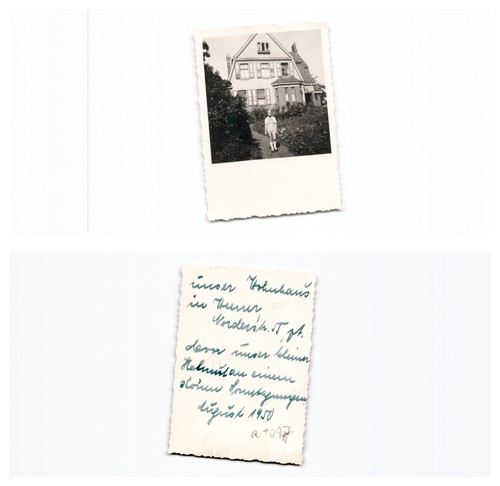 unser Wohnhaus
in Weener
Norderstr.
davor unser kleiner
Helmut an einem
schönen Sonntagmorgen
August 1950
a 1097